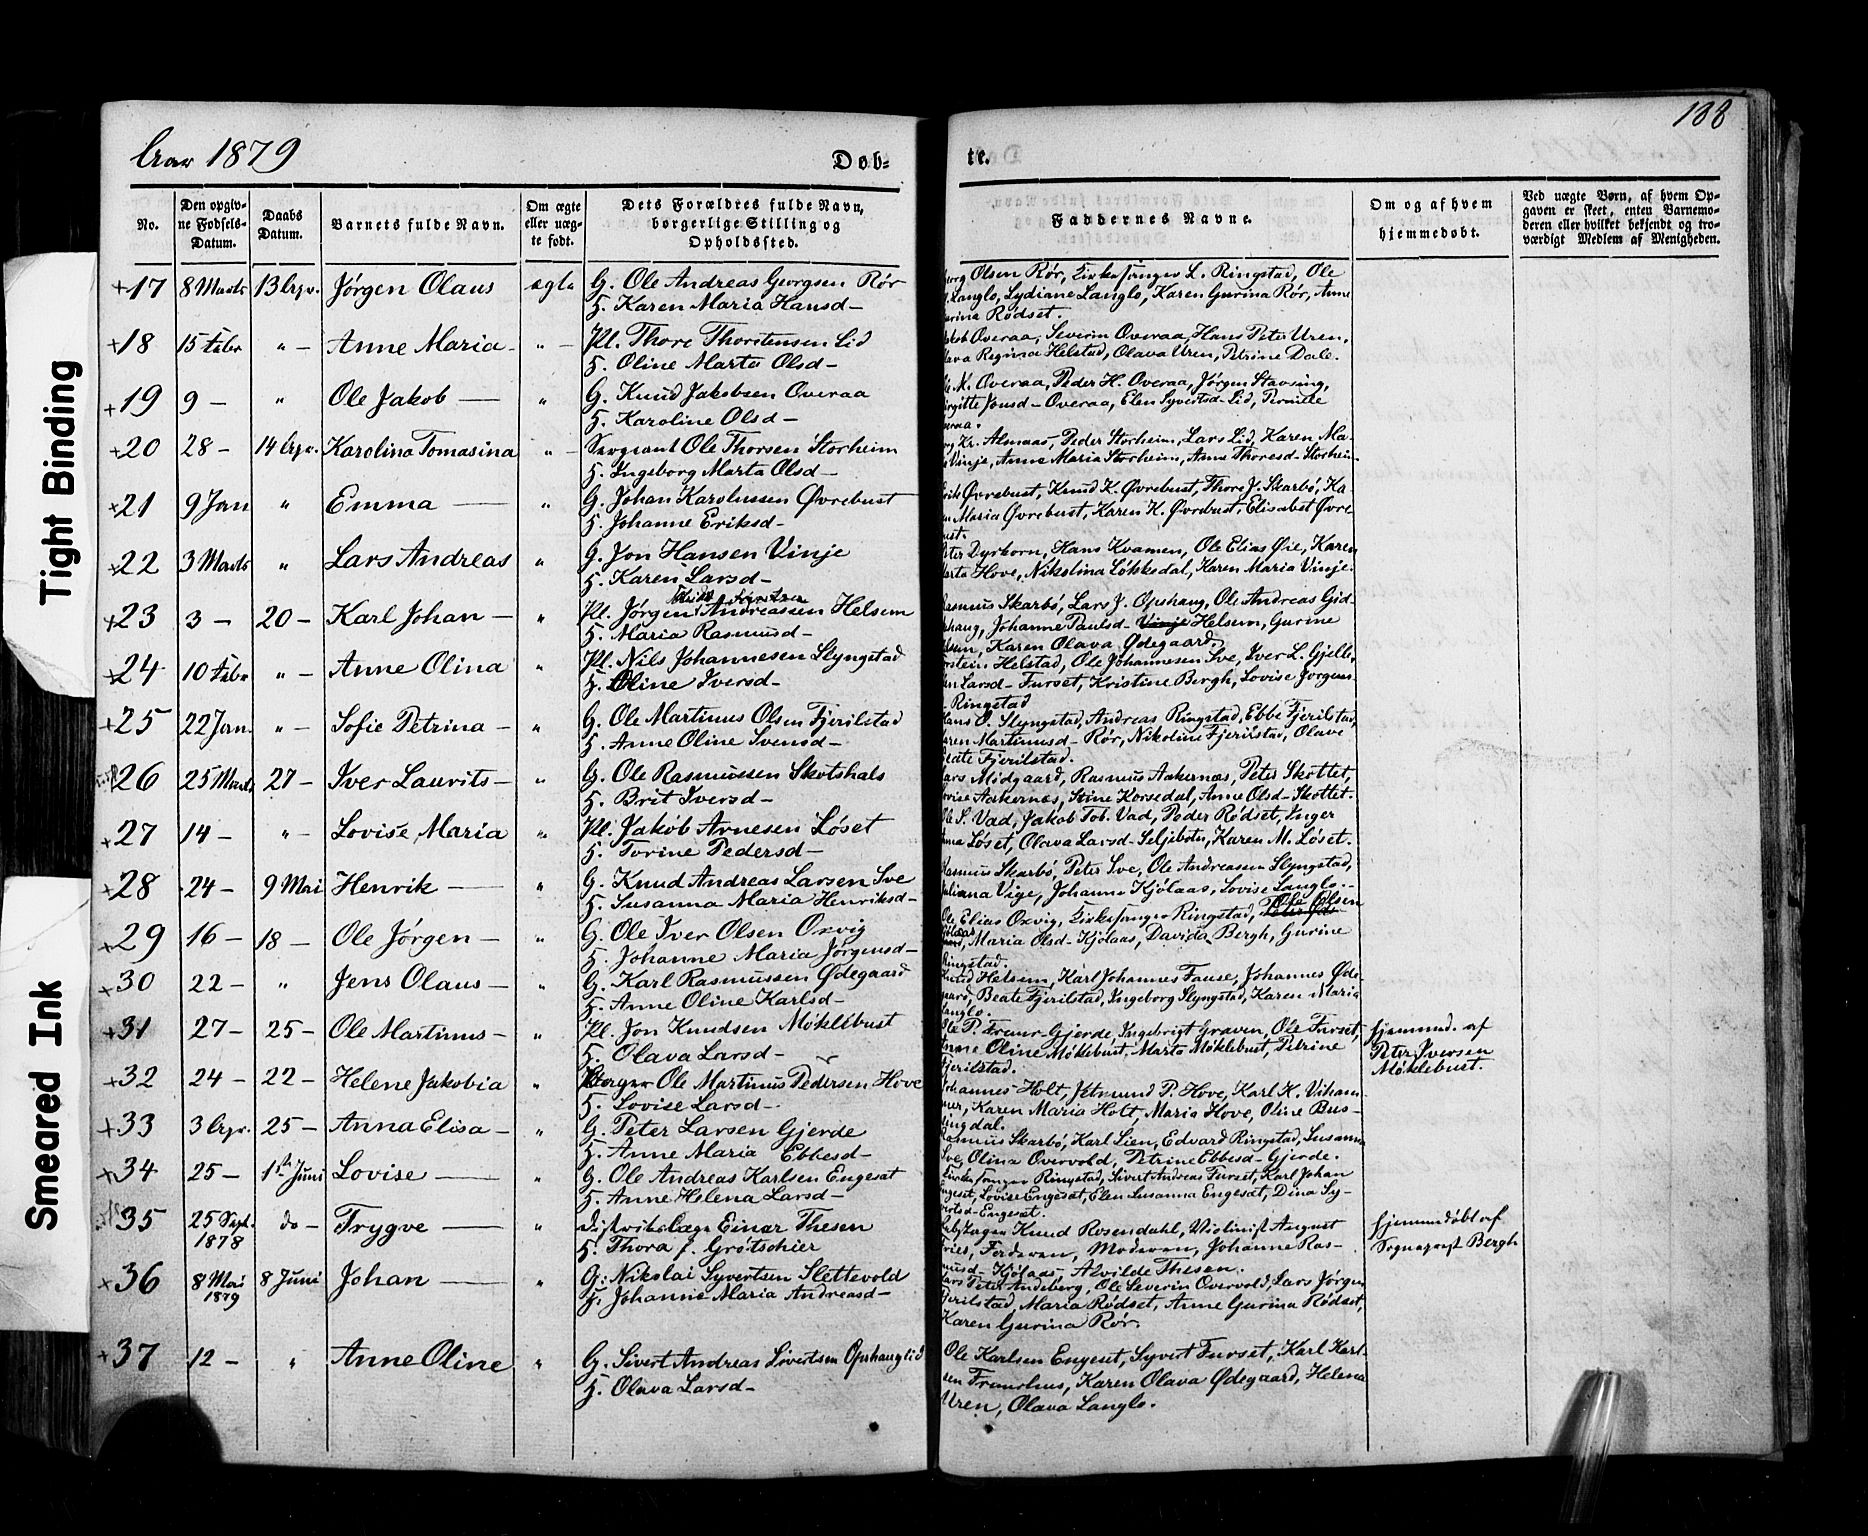 Tight Binding
Smeared Ink
188
Aar 1879
Døb-
te.
No.
Den opgivne Fødsels-Datum.
Daabs Datum.
Barnets fulde Navn.
Om ægte eller uægte født.
Dets Forældres fulde Navn, borgerlige Stilling og Opholdssted.
Faddernes Navne.
Om og af hvem hjemmedøbt.
Ved uægte Børn, af hvem Opgaven er skeet, enten Barnemoderen eller hvilket bekjendt og troværdigt Medlem af Menigheden.
+17 8 Marts 13 Apr. Jörgen Olaus ægte G. Ole Andreas Georgsen Rör
H. Karen Maria Hansd-
Olsen Rör, Kirkesanger L. Ringstad, Ole
Langlo, Lydiane Langlo, Karen Gurina Rör, Anne
Rödset.
+18 15 Febr " - Anne Maria - " - Pl. Thore Thorstensen Lid
H. Oline Marta Olsd-
Overaa, Severin Overaa, Hans Peter Uren,
Regina Helstad, Olava Uren, Petrine Dale.
+19 9 - " Ole Jakob - " G. Knud Jakobsen Overaa
H. Karoline Olsd-
K. Overaa, Peder H. Overaa, Jörgen Stavseng,
Jonsd- Overaa, Elen Syvertsd- Lid, Pernille
+20 28 - 14 Apr. Karolina Tomasina " - Sergeant Ole Thorsen Storheim
H. Ingeborg Marta Olsd-
Kr. Almaas, Peder Storheim, Lars Lid, Karen Ma-
Vinje, Anne Maria Storheim, Anne Thoresd- Storheim
+21 9 Jan " Emma - " G. Johan Karolussen Øvrebust
H. Johanne Eriksd-
Øvrebust, Knud K. Øvrebust, Thore J. Skarbö, Ka-
Maria Øvrebust, Karen K. Øvrebust, Elisabet Øvre-
bust.
+22 3 Marts " Lars Andreas " G. Jon Hansen Vinje
H. Karen Larsd-
Peter Dyrkorn, Hans Kvamen, Ole Elias Øie, Karen
Marta Hove, Nikolina Løkkedal, Karen Maria Vinje.
+23 3 - 20 - Karl Johan - " Pl. Jörgen Andreassen Helsem
H. Maria Rasmusd-
Rasmus Skarbö, Lars J. Opshaug, Ole Andreas Gjd-
Johanne Paulsd- Vinje Helsem, Gurine
Karen Olava Ødegaard.
+24 10 Febr " - Anne Olina " Pl. Nils Johannesen Slyngstad
H. Oline Iversd-
Helstad, Ole Johannesen Sve, Iver L. Gjelle,
Larsd- Furset, Kristine Bergh, Lovise Jörgens
Ringstad
+25 22 Jan. " - Sofie Petrina - " G. Ole Martinus Olsen Fjerilstad
H. Anne Oline Svensd-
Hans O. Slyngstad, Andreas Ringstad, Ebbe Fjerilstad,
Karen Martinusd- Rör, Nikoline Fjerilstad, Olave
Beate Fjerilstad.
26 25 Marts 27 - Iver Laurits - " G. Ole Rasmussen Skotshals
H. Brit Iversd-
Lars Midgaard, Rasmus Aakernæs, Peter Skottet,
Aakernæs, Stine Korsedal, Anne Olsd- Skottet.
+27 14 - " - Lovise Maria " Pl. Jakob Arnesen Löset
H. Torine Pedersd-
Ole S. Vad, Jakob Tob. Vad, Peder Rödset, Inger
Anna Löset, Olava Larsd- Seljebotn, Karen M. Löset.
+28 24 - 9 Mai Henrik - " G. Knud Andreas Larsen Sve
H. Susanna Maria Henriksd-
Rasmus Skarbö, Peter Sve, Ole Andreasen Slyngstad,
Juliana Vige, Johanne Kjölaas, Lovise Langlo.
+29 16 - 18 - Ole Jörgen - " G. Ole Iver Olsen Oxvig
H. Johanne Maria Jörgensd-
Ole Elias Oxvig, Kirkesanger Ringstad, Ole Olsen
Maria Olsd- Kjölaas, Davida Bergh, Gurine
Ringstad.
+30 22 - " Jens Olaus - " G. Karl Rasmussen Ødegaard
H. Anne Oline Karlsd-
Knud Helsem, Karl Johannes Fause, Johannes Øde-
gaard, Beate Fjerilstad, Ingeborg Slyngstad, Karen Maria
Langlo.
+31 27 - 25 - Ole Martinus - " Pl. Jon Knudsen Möklebust
H. Olava Larsd-
Ole P. Gjerde, Ingebrigt Graven, Ole Furset,
Anne Oline Möklebust, Marta Möklebust, Petrine
Fjerilstad.
hjemmed. af
Peter Iversen
Möklebust.
+32 24 - 22 - Helene Jakobia " Ole Martinus Pedersen Hove
H. Lovise Larsd-
Johannes Holt, Jetmund P. Hove, Karl K. Viham-
mer, Karen Maria Holt, Maria Hove, Oline Bus-
lingdal.
+33 3 Apr. 25 - Anna Elisa - " G. Peter Larsen Gjerde
H. Anne Maria Ebbesd-
Rasmus Skarbö, Karl Lien, Edvard Ringstad, Susanna
Sve, Olina Overvold, Petrine Ebbesd- Gjerde.
+34 25 - 1ste Juni Lovise - " G. Ole Andreas Karlsen Engeset
H. Anne Helena Larsd-
Kirkesanger Ringstad, Sivert Andreas Furset, Karl Johan
Engeset, Lovise Engeset, Elen Susanna Engeset, Dina Sy-
vertsd- Engeset.
35 25 Sept. 1878 do - Trygve - " Distriktslæge Einar Thesen
H. Thora J. Grötschier
Knud Rosendahl, Violinist August
Fries, Faderen, Moderen, Johanne Ras-
musd- Kjölaas, Alvilde Thesen.
hjemmedöbt af
Sogneprest Bergh
+36 8 Mai 1879 8 Juni Johan - " G. Nikolai Syvertsen Slettevold
H. Johanne Maria Andreasd-
Lars Peter Andeberg, Ole Severin Overvold, Lars Jörgen
Fjerilstad, Maria Rödset, Anne Gurina Rödset,
Karen Gurina Rör.
+37 12 - " Anne Oline " G. Sivert Andreas Sivertsen Opshauglid
H. Olava Larsd-
Ole Karlsen Engeset, Syvert Furset, Karl Karl-
sen Franshus, Karen Olava Ødegaard, Helena
Uren, Olava Langlo.